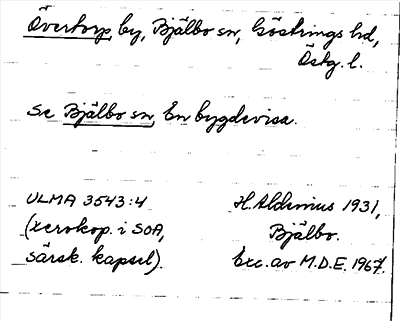 Övertorp by, Bjälbo sn, Göstrings hd,
Östg. l.
Se Bjälbo sn, En bygdevisa.
ULMA 3543:4
(xerokop. i SOA,
särsk. kapsel).
H. Aldemius 1931,
Bjälbo.
Exc. av M.D.E. 1967.